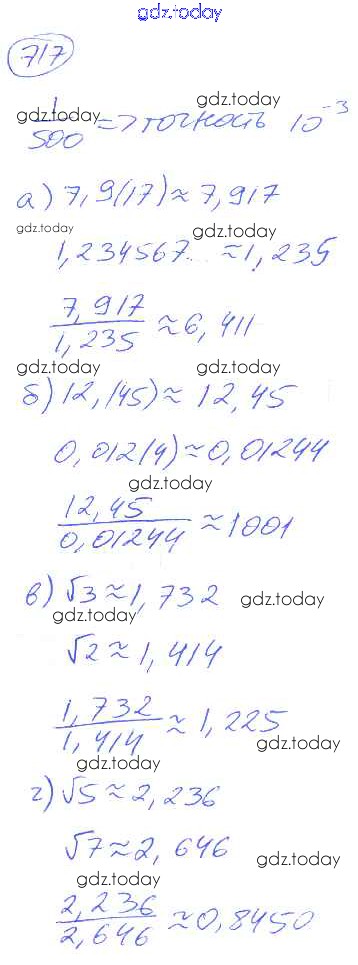 gdz.today
717
gdz.today
1/500 => точность 10⁻³
gdz.today
а) 7,9(17) ≈ 7,917
gdz.today
gdz.today
1,234567... ≈ 1,235
7,917/1,235 ≈ 6,411
gdz.today
gdz.today
б) 12,(45) ≈ 12,45
0,012(4) ≈ 0,01244
gdz.today
12,45/0,01244 ≈ 1001
gdz.today
в) √3 ≈ 1,732
gdz.today
gdz.today
√2 ≈ 1,414
1,732/1,414 ≈ 1,225
gdz.today
gdz.today
г) √5 ≈ 2,236
√7 ≈ 2,646
gdz.today
gdz.today
2,236/2,646 ≈ 0,8450
gdz.today